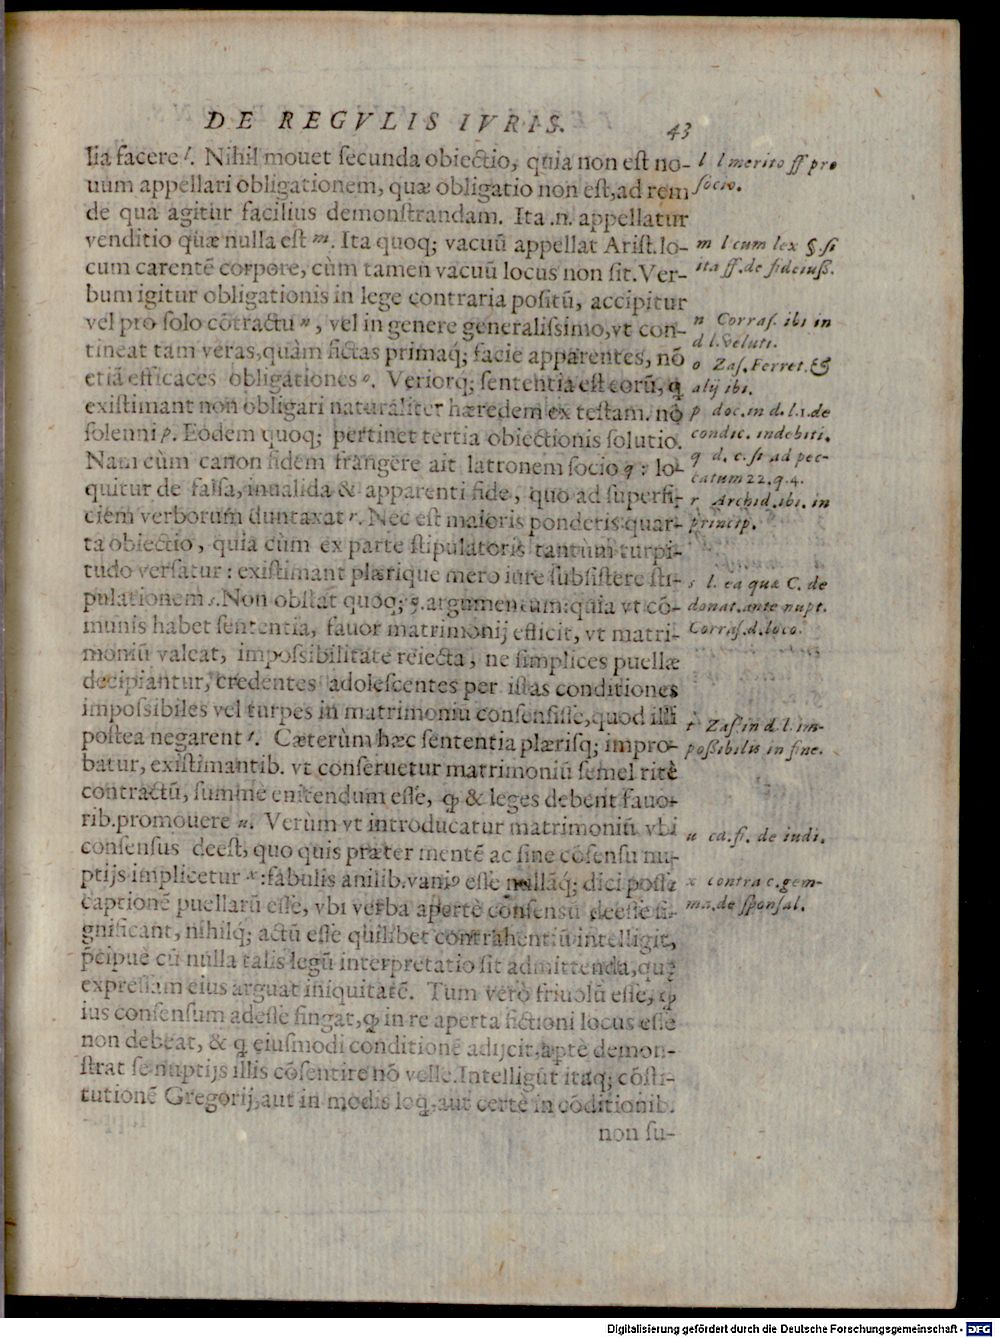 DE REGVLIS IVRIS. 43
lia facere l. Nihil mouet secunda obiectio, quia non est no-
uum appellari obligationem, quæ obligatio non est, ad rem
de qua agitur facilius demonstrandam. Ita .n. appellatur
venditio quæ nulla est m. Ita quoq; vacuū appellat Arist. lo-
cum carentē corpore, cùm tamen vacuū locus non sit. Ver-
bum igitur obligationis in lege contraria positū, accipitur
vel pro solo cōtractu n, vel in genere generalissimo, vt con-
tineat tam veras, quàm fictas primaq́; facie apparentes, nō
etiā efficaces obligationes o. Veriorq́; sententia est eorū, q
existimant non obligari naturaliter hæredem ex testam. nō
solenni p. Eodem quoq; pertinet tertia obiectionis solutio.
Nam cùm canon fidem frangere ait latronem socio q: lo-
quitur de falsa, inualida & apparenti fide, quo ad superfi-
ciem verborum duntaxat r. Nec est maioris ponderis quar-
ta obiectio, quia cùm ex parte stipulatoris tantùm turpi-
tudo versatur: existimant plærique mero iure subsistere sti-
pulationem s. Non obstat quoq; 5. argumentum: quia vt cō-
munis habet sententia, fauor matrimonij efficit, vt matri-
moniū valeat, impossibilitate reiecta, ne simplices puellæ
decipiantur, credentes adolescentes per istas conditiones
impossibiles vel turpes in matrimoniū consensisse, quod illi
postea negarent t. Cæterùm hæc sententia plærisq; impro-
batur, existimantib. vt conseruetur matrimoniū semel ritè
contractū, summè enitendum esse, ꝙ & leges debent fauo-
rib. promouere u. Verùm vt introducatur matrimoniū vbi
consensus deest, quo quis præter mentē ac sine cōsensu nu-
ptijs implicetur x: fabulis anilib. vaniꝰ esse nullāq́; dici posse
captionē puellarū esse, vbi verba apertè consensū deesse si-
gnificant, nihilq́; actū esse quilibet contrahentiū intelligit,
p̄cipuè cū nulla talis legū interpretatio sit admittenda, quę
expressam eius arguat iniquitatē. Tum verò friuolū esse, ꝙ
ius consensum adesse fingat, ꝙ in re aperta fictioni locus esse
non debeat, & q eiusmodi conditionē adijcit, aptè demon-
strat se nuptijs illis cōsentire nō velle. Intelligūt itaq; cōsti-
tutionē Gregorij, aut in modis loq, aut certè in cōditionib.
non su-
l l merito ff pro
socio.
m l cum lex §. si
ita ff. de fideiuss.
n Corras. ibi in
d l. veluti.
o Zas. Ferret. &
alij ibi.
p doc. in d. l. 1. de
condic. indebiti.
q d. c. si ad pec-
catum 22. q. 4.
r Archid. ibi. in
princip.
s l. ea quæ C. de
donat. ante nupt.
Corras. d. loco.
t Zas. in d. l. im-
possibilis in fine.
u ca. fi. de iudi.
x contra c. gem-
ma. de sponsal.
Digitalisierung gefördert durch die Deutsche Forschungsgemeinschaft - DFG